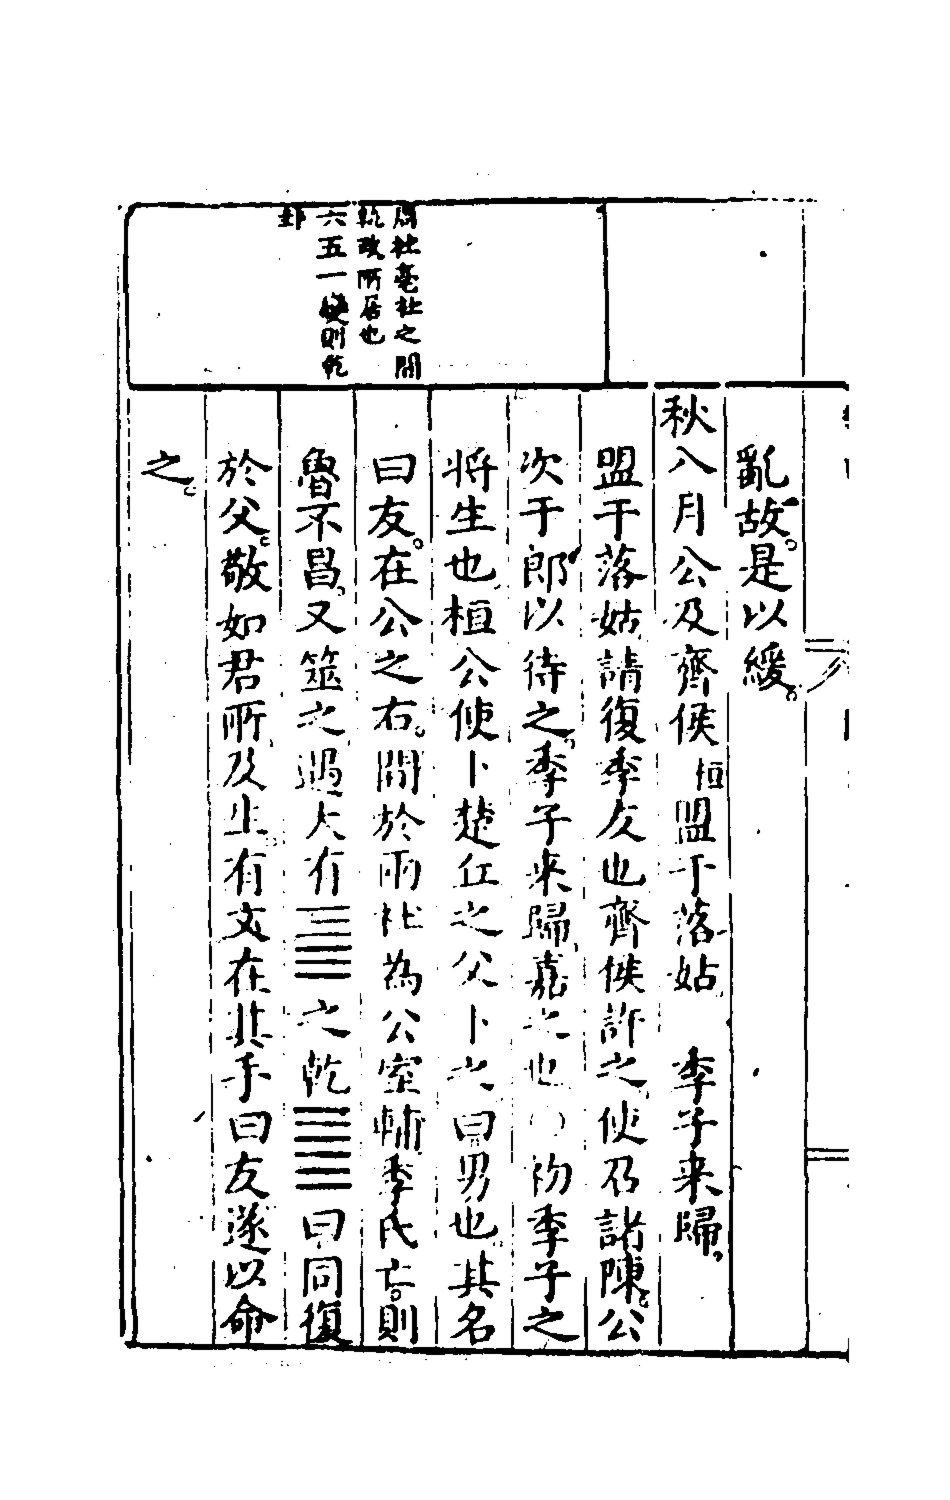 周社亳社之間
執政所居也
六五一變則乾
卦
亂故是以緩
秋八月公及齊侯桓盟于落姑　季子来歸
盟于落姑請復季友也齊侯許之使召諸陳公
次于郎以待之季子来歸嘉之也　初季子之
将生也桓公使卜楚丘之父卜之曰男也其名
曰友在公之右間於兩社為公室輔季氏亡則
魯不昌又筮之遇大有䷍之乾䷀曰同復
於父敬如君所及生有文在其手曰友遂以命
之